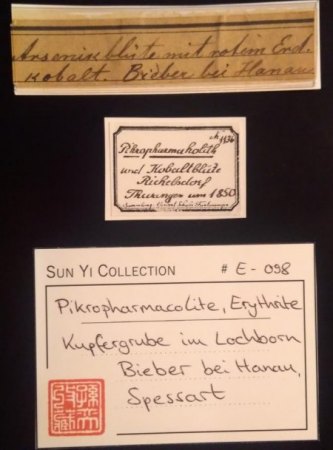 Arsenikblüte mit rotem Erd-
kobalt. Bieber bei Hanau.
№ 1136
Pikropharmakolith
und Kobaltblüte
Richelsdorf
Thüringen um 1850
SUN YI COLLECTION # E-098
Pikropharmacolite, Erythrite
Kupfergrube im Lochborn
Bieber bei Hanau,
Spessart